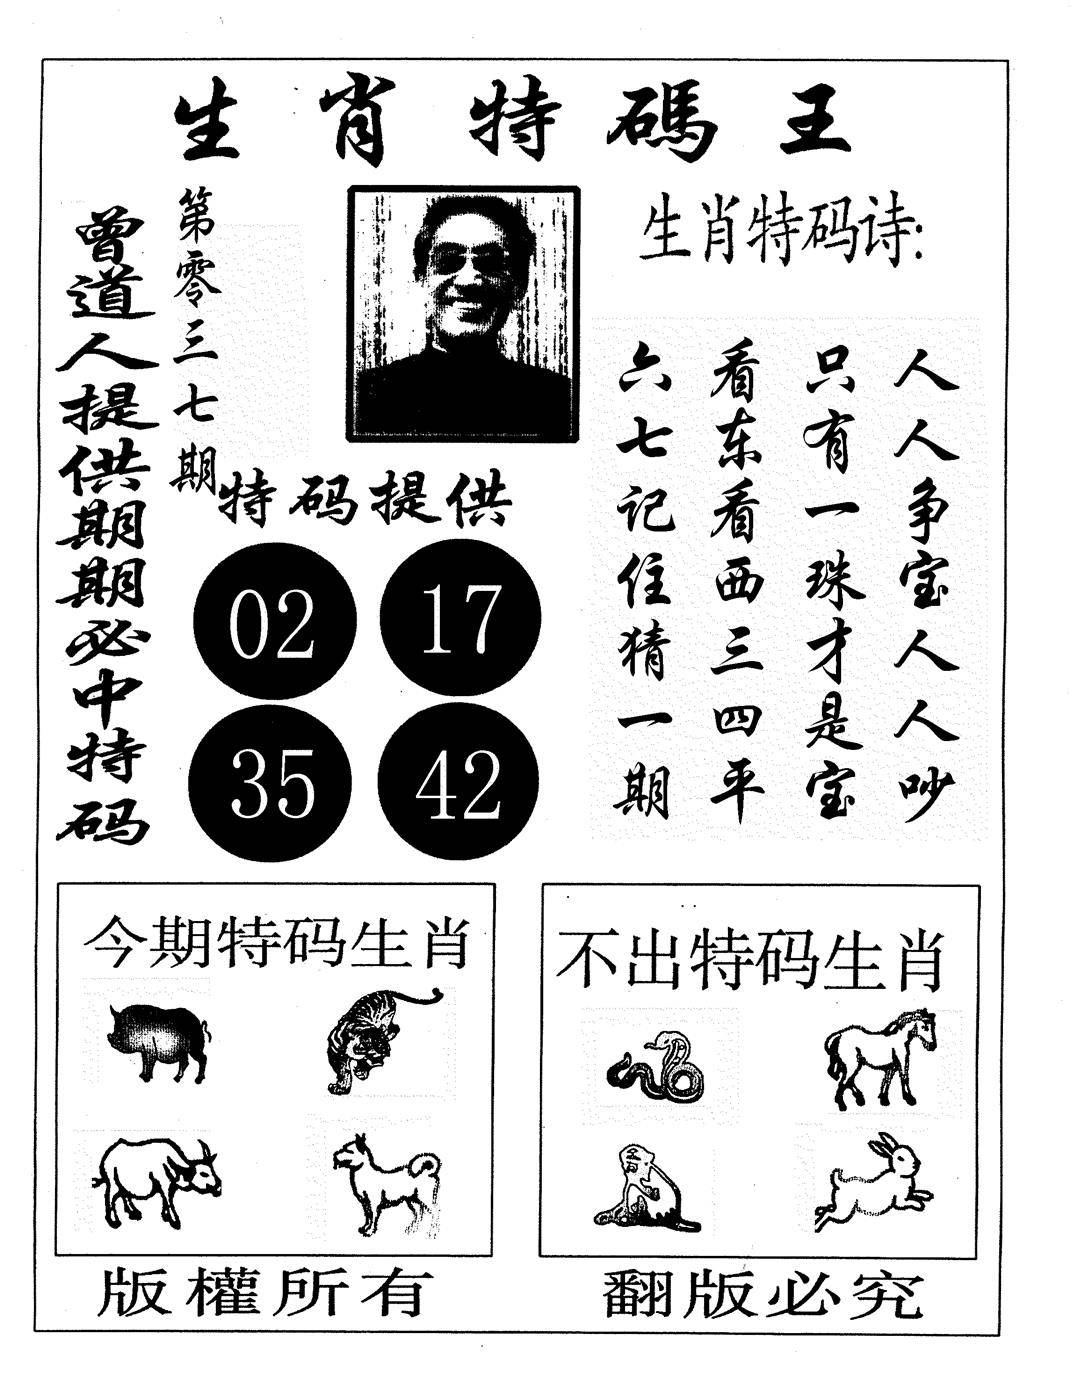 生肖特碼王
曾道人提供期期必中特码
第零三七期
生肖特码诗:
人人争宝人人吵
只有一珠才是宝
看东看西三四平
六七记住猜一期
特码提供
02 17
35 42
今期特码生肖
不出特码生肖
版權所有
翻版必究